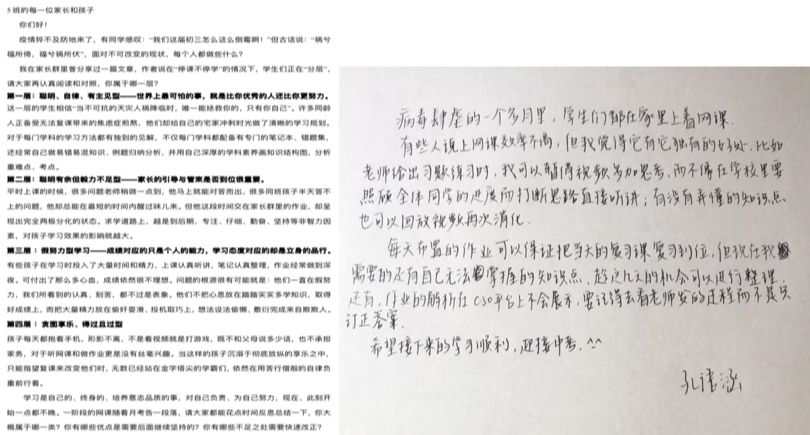 5班的每一位家长和孩子
你们好！
疫情猝不及防地来了，有同学感叹：“我们这届初三怎么这么倒霉啊！”但古话说：“祸兮
福所倚，福兮祸所伏”，面对不可改变的现状，每个人都做些什么？
我在家长群里曾分享过一篇文章，作者说在“停课不停学”的情况下，学生们正在“分层”，
请大家再认真阅读和对照，你属于哪一层？
第一层：聪明、自律、有主见型——世界上最可怕的事，就是比你优秀的人还比你更努力。
这一层的学生相信“当不可抗的天灾人祸降临时，唯一能拯救你的，只有你自己”。许多同龄
人正备受无法复课带来的焦虑症煎熬，他们却给自己的宅家冲刺时光做了清晰的学习规划。
对于每门学科的学习方法都有独到的见解，不仅每门学科都配备有专门的笔记本、错题集，
还经常自己做易错易混知识、例题归纳分析，并用自己深厚的学科素养画知识结构图，分析
重难点、考点。
第二层：聪明有余但毅力不足型——家长的引导与管束是否到位很重要。
平时上课的时候，很多问题老师稍微一点到，他马上就能对答而出，很多同班孩子半天答不
上的问题，他却总能在最短的时间内醒过味儿来。但他这段时间交在家长群里的作业，却呈
现出完全两极分化的状态，求学道路上，越是到后期，专注、仔细、勤奋、坚持等非智力因
素，对孩子学习效果的影响就越大。
第三层：假努力型学习——成绩对应的只是个人的能力，学习态度对应的却是立身的品行。
有些孩子在学习时投入了大量时间和精力，上课认真听讲，笔记认真整理，作业经常做到深
夜，可付出了那么多心血，成绩依然很不理想，问题的根源很有可能就是：他们一直在假努
力，我们所看到的认真、刻苦，都不过是表象。他们不把心思放在踏踏实实多学知识，取得
好成绩上，而把大量精力放在偷奸耍滑、投机取巧上，想法设法偷懒、敷衍完成来自欺欺人。
第四层：贪图享乐、得过且过型
孩子每天都抱着手机，形影不离，不是看视频就是打游戏，既不和父母说多少话，也不承担
家务，对于听网课和做作业更是没有丝毫兴趣。当这样的孩子沉溺于彻底放纵的享乐之中，
只能指望复课来改变他们时，无数已经站在金字塔尖的学霸们，依然在用苦行僧般的自律负
重前行着。
学习是自己的、终身的、培养意志品质的事，对自己负责、为自己努力，现在、此刻开
始一点都不晚。一阶段的网课随着月考告一段落，请大家都能花点时间反思总结一下，你大
概属于哪一类？你有哪些优点是需要后面继续坚持的？你有哪些不足之处需要快速改正？
病毒肆虐的一个多月里，学生们都在家里上着网课.
有些人说上网课效率不高，但我觉得它有它独有的好处，比如
老师给出习题练习时，我可以暂停视频多加思考，而不像在学校里要
照顾全体同学的进度而打断思路直接听讲；有没有弄懂的知识点
也可以回放视频再次消化.
每天布置的作业可以保证把当天的复习课复习到位，但现在我
需要的还有自己无法掌握的知识点，趁这几天的机会可以进行整理.
还有，作业的解析在C30平台上不会展示，要记得去看老师发的过程而不是只
订正答案.
希望接下来的学习顺利，迎接中考.^^